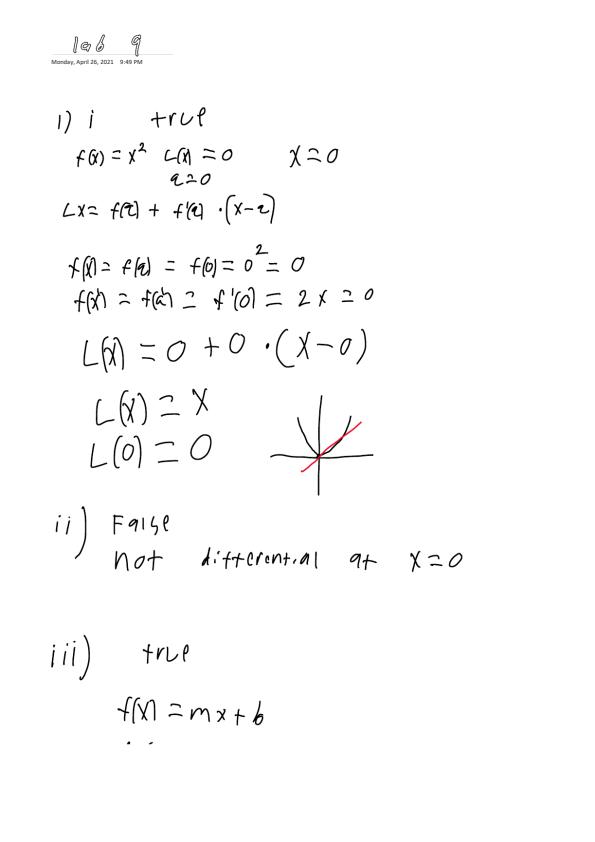 lab 9
Monday, April 26, 2021 9:49 PM
1) i true
f(x) = x² L(x) = 0 x = 0
a = 0
Lx = f(a) + f'(a) · (x - a)
f(x) = f(a) = f(0) = 0² = 0
f(x') = f(a') = f'(0) = 2x = 0
L(x) = 0 + 0 · (x - 0)
L(x) = x
L(0) = 0
ii) False
not differential at x = 0
iii) true
f(x) = mx + b